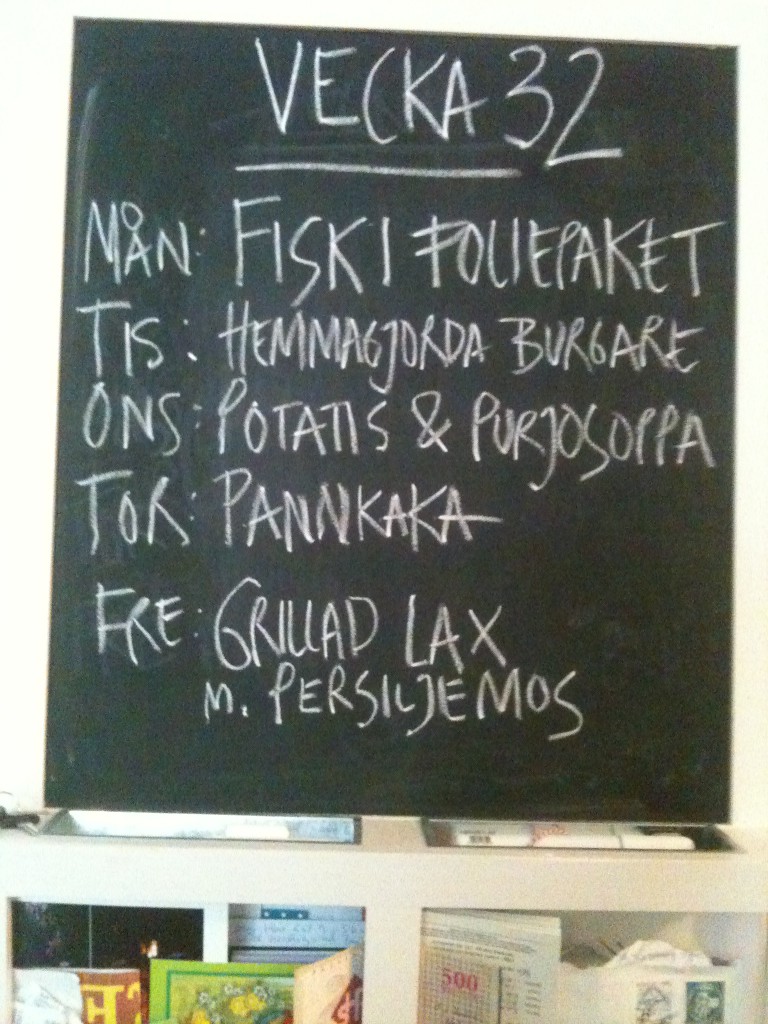 VECKA 32
MÅN: FISK I FOLIEPAKET
TIS: HEMMAGJORDA BURGARE
ONS: POTATIS & PURJOSOPPA
TOR: PANNKAKA
FRE: GRILLAD LAX
m. PERSILJEMOS
500